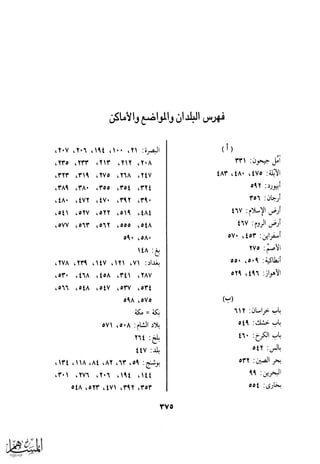 فهرس البلدان والمواضع والأماكن
( أ )
آمُل جيحون: ٣٣١
الأبلّة: ٤٧٥، ٤٨٠، ٤٨٣
أبيورد: ٥٩٢
أرجان: ٣٥٦
أرض الإسلام: ٤٦٧
أرض الروم: ٤٦٧
أسفراين: ٤٥٣، ٥٧٠
الأصمّ: ٢٧٥
أنطاكية: ٥٠٩، ٥٥٠
الأهواز: ٤٩٦، ٥٢٩
(ب)
باب خراسان: ٦١٢
باب خشك: ٥٤٩
باب الكرخ: ٤٦٠
بالس: ٥٤٢
بحر الصين: ٥٣٢
البحرين: ٩٩
بخارى: ٥٥٤
البصرة: ٢١، ١٠٠، ١٩٤، ٢٠٦، ٢٠٧،
٢٠٨، ٢١٢، ٢١٣، ٢٣٣، ٢٣٥،
٢٤٧، ٢٦٨، ٢٧٥، ٣١٩، ٣٢٣،
٣٢٤، ٣٥٤، ٣٥٥، ٣٨٠، ٣٨٩،
٣٩٠، ٣٩٢، ٤٧٠، ٤٧٢، ٤٨٠،
٤٨٤، ٥١٧، ٥٢٢، ٥٢٧، ٥٤١،
٥٤٨، ٥٥٥، ٥٦٢، ٥٦٣، ٥٧٧،
٥٨٠، ٥٩٠
بغ: ١٤٨
بغداد: ٧١، ١٢١، ١٤٧، ٢٣٩، ٢٧٨،
٢٨٧، ٣٤١، ٤٥٨، ٤٦٨، ٥٣٠،
٥٣٤، ٥٣٧، ٥٤٧، ٥٤٨، ٥٦٦،
٥٧٥، ٥٩٨
بكة = مكة
بلاد الشام: ٥٠٨، ٥٧١
بلخ: ٢٦٤
بلد: ٤٤٧
بوشنج: ٥٩، ٦٣، ٨٢، ٨٤، ١١٨، ١٣٤،
١٤٤، ١٩٤، ٢٠٦، ٢٧٦، ٣٠١،
٣٥٣، ٣٩٢، ٤٧١، ٥٢٣، ٥٤٨
٣٧٥